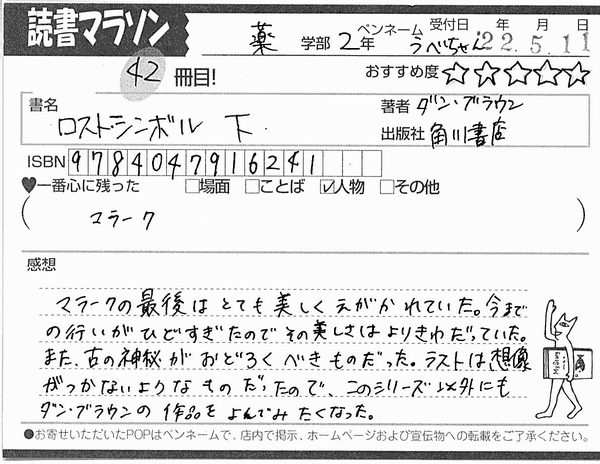 読書マラソン
薬 学部 2年 ペンネーム うべちゃん 受付日 年 月 日
22.5.11
42 冊目!
おすすめ度 ☆☆☆☆☆
書名
ロストシンボル 下
著者 ダン・ブラウン
出版社 角川書店
ISBN 9784047916241
♥一番心に残った □場面 □ことば ☑人物 □その他
( マラーク )
感想
マラークの最後はとても美しくえがかれていた。今まで
の行いがひどすぎたのでその美しさはよりきわだっていた。
また、古の神秘がおどろくべきものだった。ラストは想像
がつかないようなものだったので、このシリーズ以外にも
ダン・ブラウンの作品をよんでみたくなった。
●お寄せいただいたPOPはペンネームで、店内で掲示、ホームページおよび宣伝物への転載をご了承ください。